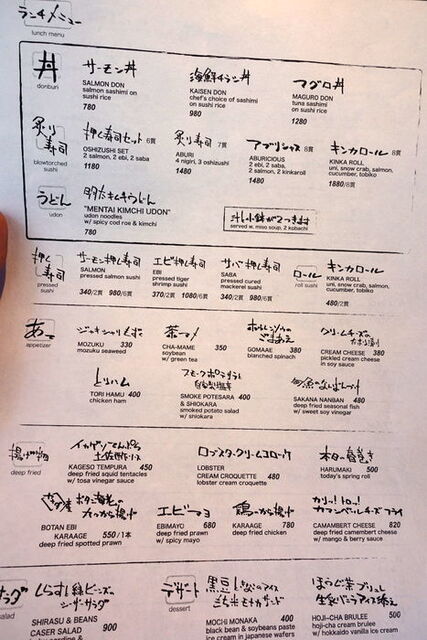 ランチメニュー
lunch menu
丼
donburi
サーモン丼
SALMON DON
salmon sashimi on
sushi rice
780
海鮮チラシ丼
KAISEN DON
chef's choice of sashimi
on sushi rice
980
マグロ丼
MAGURO DON
tuna sashimi
on sushi rice
1280
炙り寿司
blowtorched
sushi
押し寿司セット 6貫
OSHIZUSHI SET
2 salmon, 2 ebi, 2 saba
1180
炙り寿司 7貫
ABURI
4 nigiri, 3 oshizushi
1480
アブリシャス 8貫
ABURICIOUS
2 salmon, 2 ebi, 2 saba,
2 salmon, 2 kinkaroll
1480
キンカロール 8貫
KINKA ROLL
uni, snow crab, salmon,
cucumber, tobiko
1880/8貫
うどん
udon
明太キムチうどん
"MENTAI KIMCHI UDON"
udon noodles
w/ spicy cod roe & kimchi
780
汁と小鉢がつきます
served w. miso soup, 2 kobachi
押し寿司
pressed
sushi
サーモン押し寿司
SALMON
pressed salmon sushi
340/2貫 980/6貫
エビ押し寿司
EBI
pressed tiger
shrimp sushi
370/2貫 1080/6貫
サバ押し寿司
SABA
pressed cured
mackerel sushi
340/2貫 980/6貫
ロール
roll sushi
キンカロール
KINKA ROLL
uni, snow crab, salmon,
cucumber, tobiko
480/2貫
あて
appetizer
MOZUKU 330
mozuku seaweed
茶マメ
CHA-MAME 350
soybean
w/ green tea
ホウレンソウのごまあえ
GOMAAE 380
blanched spinach
クリームチーズの
CREAM CHEESE 380
pickled cream cheese
in soy sauce
とりハム
TORI HAMU 400
chicken ham
スモークポテサラと
SMOKE POTESARA 400
& SHIOKARA
smoked potato salad
w/ shiokara
SAKANA NANBAN 480
deep fried seasonal fish
w/ sweet soy vinegar
揚げ物
deep fried
イカゲソてんぷら
土佐酢ソース
KAGESO TEMPURA 450
deep fried squid tentacles
w/ tosa vinegar sauce
ロブスタークリームコロッケ
LOBSTER
CREAM CROQUETTE 480
lobster cream croquette
本日の春巻き
HARUMAKI 500
today's spring roll
ボタン海老の
から揚げ
BOTAN EBI
KARAAGE 550/1本
deep fried spotted prawn
エビマヨ
EBIMAYO 680
deep fried prawn
w/ spicy mayo
鶏から揚げ
KARAAGE 780
deep fried chicken
カリッ!トロッ!
カマンベールチーズフライ
CAMAMBERT CHEESE 820
deep fried camambert cheese
w/ mango & berry sauce
サラダ
salad
しらすと緑ビーンズの
シーザーサラダ
SHIRASU & BEANS
CASER SALAD 900
デザート
dessert
MOCHI MONAKA 400
black bean & soybeans paste
ice cream in japanese wafers
ほうじ茶ブリュレ
生氷バニラアイス添え
HOJI-CHA BRULEE 500
hoji-cha cream brulee
w/ hokkaido vanilla ice cream